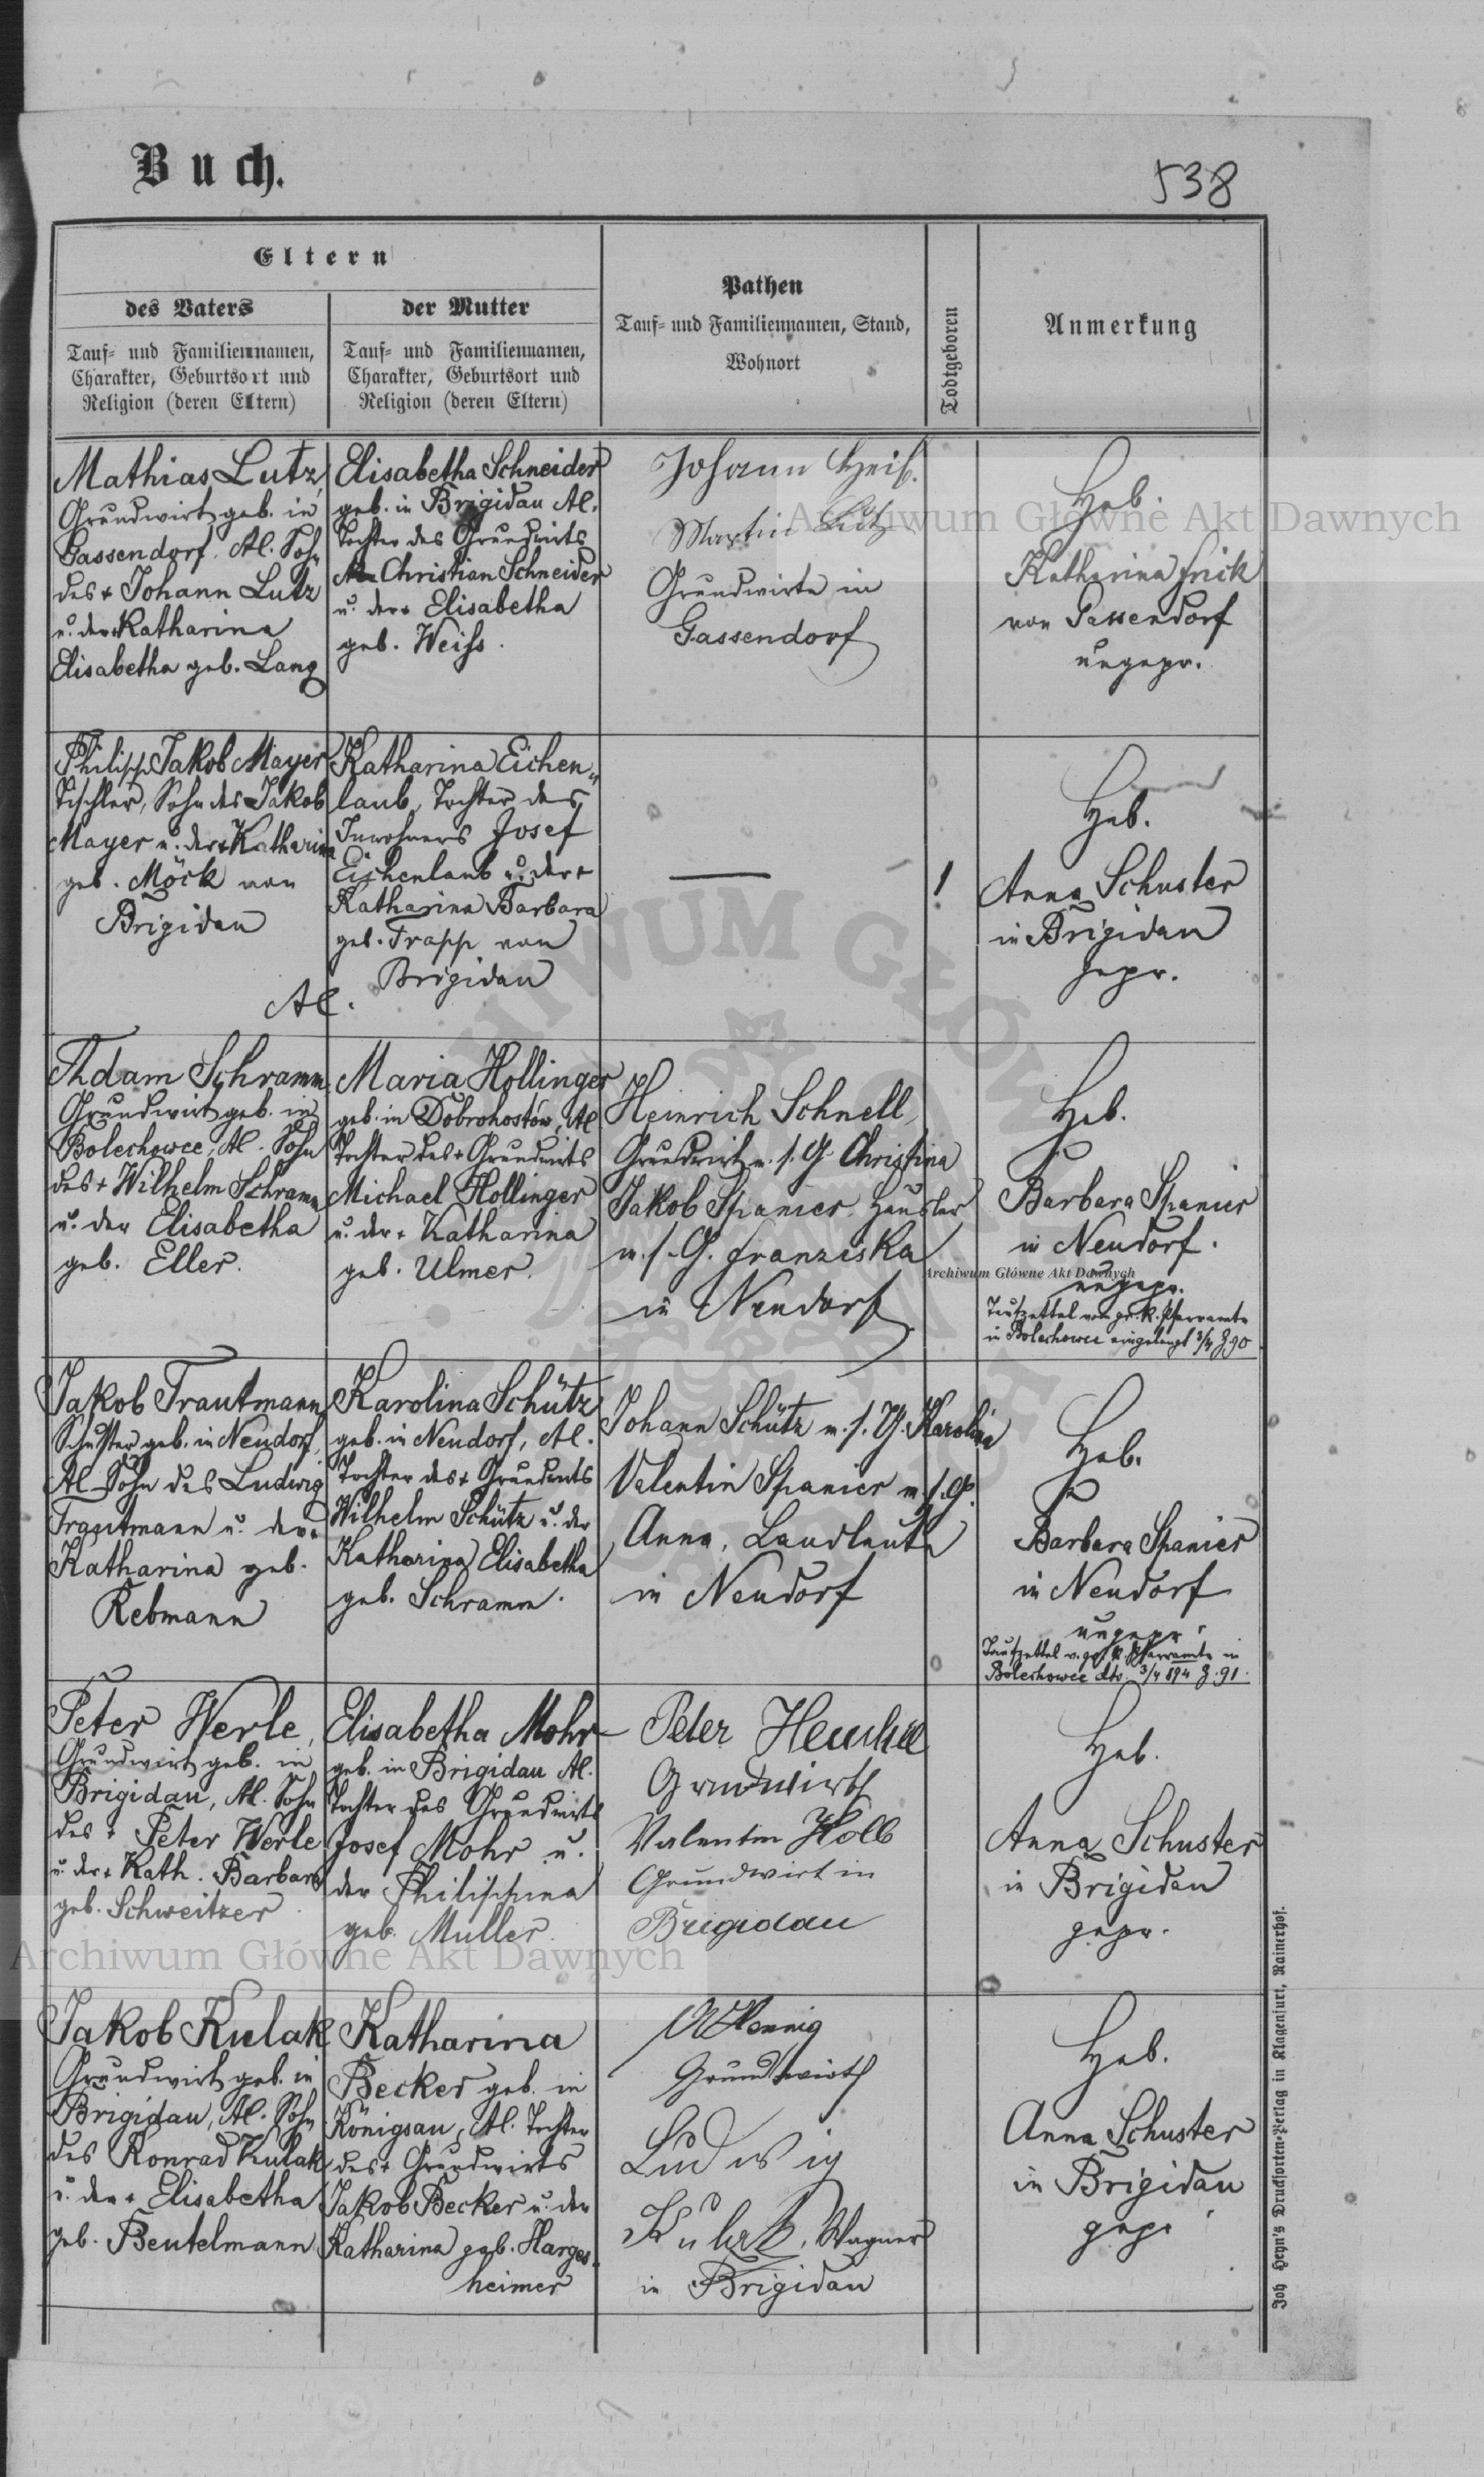 Buch.
538
Eltern
des Vaters
Tauf- und Familiennamen,
Charakter, Geburtsort und
Religion (deren Eltern)
der Mutter
Tauf- und Familiennamen,
Charakter, Geburtsort und
Religion (deren Eltern)
Pathen
Tauf- und Familiennamen, Stand,
Wohnort
Todtgeboren
Anmerkung
Mathias Lutz,
Grundwirt geb. in
Gassendorf. Al. Sohn
des + Johann Lutz
u. der + Katharina
Elisabetha geb. Lang
Elisabetha Schneider
geb. in Brigidau Al.
Tochter des Grundwirts
Christian Schneider
u. der + Elisabetha
geb. Weiss.
Johann Heiß.
Martin Lutz
Grundwirte in
Gassendorf
Heb.
Katharina Frick
von Gassendorf
ungepr.
Philipp Jakob Mayer
Tischler, Sohn des Jakob
Mayer u. der + Katharina
geb. Möck von
Brigidau
Al.
Katharina Eichen„
laub, Tochter des
Inwohners Josef
Eichenlaub u. der +
Katharina Barbara
geb. Trapp von
Brigidau
—
1
Heb.
Anna Schuster
in Brigidau
gepr.
Adam Schramm,
Grundwirt geb. in
Bolechowce, Al. Sohn
des + Wilhelm Schramm
u. der Elisabetha
geb. Eller.
Maria Hollinger
geb. in Dobrohostów, Al
Tochter des + Grundwirts
Michael Hollinger
u. der + Katharina
geb. Ulmer.
Heinrich Schnell,
Grundwirt u. s. G. Christina
Jakob Spanier, Häusler
u. s. G. Franziska
in Neudorf
Heb.
Barbara Spanier
in Neudorf.
ungepr.
Taufzettel vom gr. k. Pfarramte
in Bolechowce eingelangt 3/4 Z 90
Jakob Trautmann
Schuster geb. in Neudorf,
Al. Sohn des Ludwig
Trautmann u. der +
Katharina geb.
Rebmann
Karolina Schütz
geb. in Neudorf, Al.
Tochter des + Grundwirts
Wilhelm Schütz u. der
Katharina Elisabetha
geb. Schramm.
Johann Schütz u. s. G. Karolina
Valentin Spanier u. s. G.
Anna, Landleute
in Neudorf
Heb.
Barbara Spanier
in Neudorf
ungepr.
Taufzettel v. gr. k. Pfarramte in
Bolechowce dto. 3/4 894 Z. 91.
Peter Werle,
Grundwirt geb. in
Brigidau, Al. Sohn
des + Peter Werle
u. der + Kath. Barbara
geb. Schweitzer.
Elisabetha Mohr
geb. in Brigidau Al.
Tochter des Grundwirts
Josef Mohr u.
der Philippina
geb. Müller.
Peter
Grundwirth
Valentin Kolb
Grundwirt in
Brigidau
Heb.
Anna Schuster
in Brigidau
gepr.
Jakob Kulak
Grundwirt geb. in
Brigidau, Al. Sohn
des Konrad Kulak
u. der + Elisabetha
geb. Beutelmann
Katharina
Becker geb. in
Königsau, Al. Tochter
des + Grundwirts
Jakob Becker u. der
Katharina geb. Harges-
heimer
Hennig
Grundwirth
Ludwig
Kulak, Wagner
in Brigidau
Heb.
Anna Schuster
in Brigidau
gepr.
Joh Heyn's Drucksorten-Verlag in Klagenfurt, Rainerhof.
Archiwum Główne Akt Dawnych
Archiwum Główne Akt Dawnych
Archiwum Główne Akt Dawnych